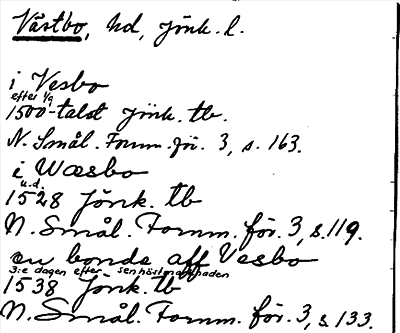 Västbo, hd, Jönk. l.
i Vesbo
efter 1/9
1500-talet Jönk. tb.
N. Smål. Fornm. för. 3, s. 163.
i Wæsbo
u.d.
1528 Jönk. tb
N. Smål. Fornm. för. 3, s. 119.
en bonde aff Vesbo
3:e dagen efter senhöstmarknaden
1538 Jönk. tb
N. Smål. Fornm. för. 3, s. 133.